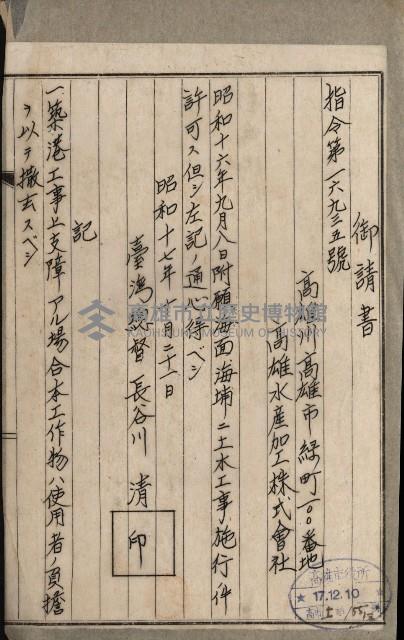 御請書
指令第一六九三五號
高雄州高雄市綠町一〇〇番地
高雄水産加工株式會社
昭和十六年九月八日附願海面海埔ニ土木工事施行ノ件
許可ス但シ左記ノ通心得ベシ
昭和十七年十月二十一日
臺灣總督 長谷川 清 印
記
一築港工事上支障アル場合本工作物ハ使用者ノ負擔
ヲ以テ撤去スベシ
高雄市立歷史博物館
KAOHSIUNG MUSEUM OF HISTORY
高雄市役所
17.12.10